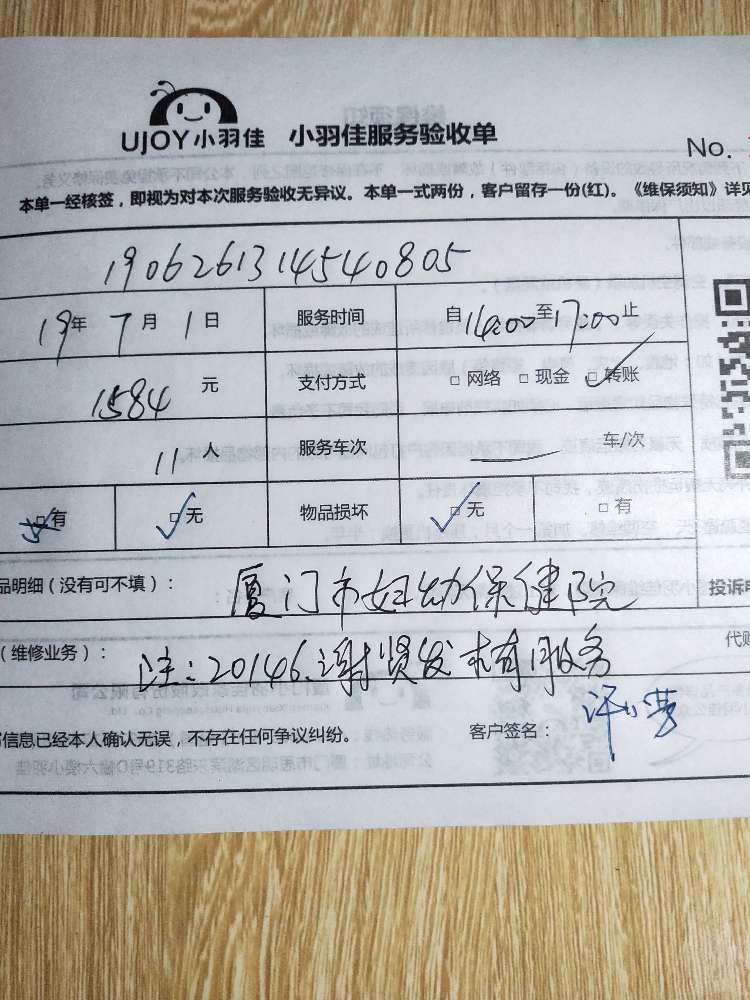 UJOY小羽佳 小羽佳服务验收单
No.
本单一经核签，即视为对本次服务验收无异议。本单一式两份，客户留存一份(红)。《维保须知》详见
1906261314540805
19年 7月 1日 服务时间 自14:00至17:00止
1584 元 支付方式 □网络 □现金 □转账
11人 服务车次 车/次
□有 □无 物品损坏 □无 □有
品明细（没有可不填）： 厦门市妇幼保健院 投诉电
（维修业务）： 注：20146.谢贤发未有服务 代购
信息已经本人确认无误，不存在任何争议纠纷。 客户签名：